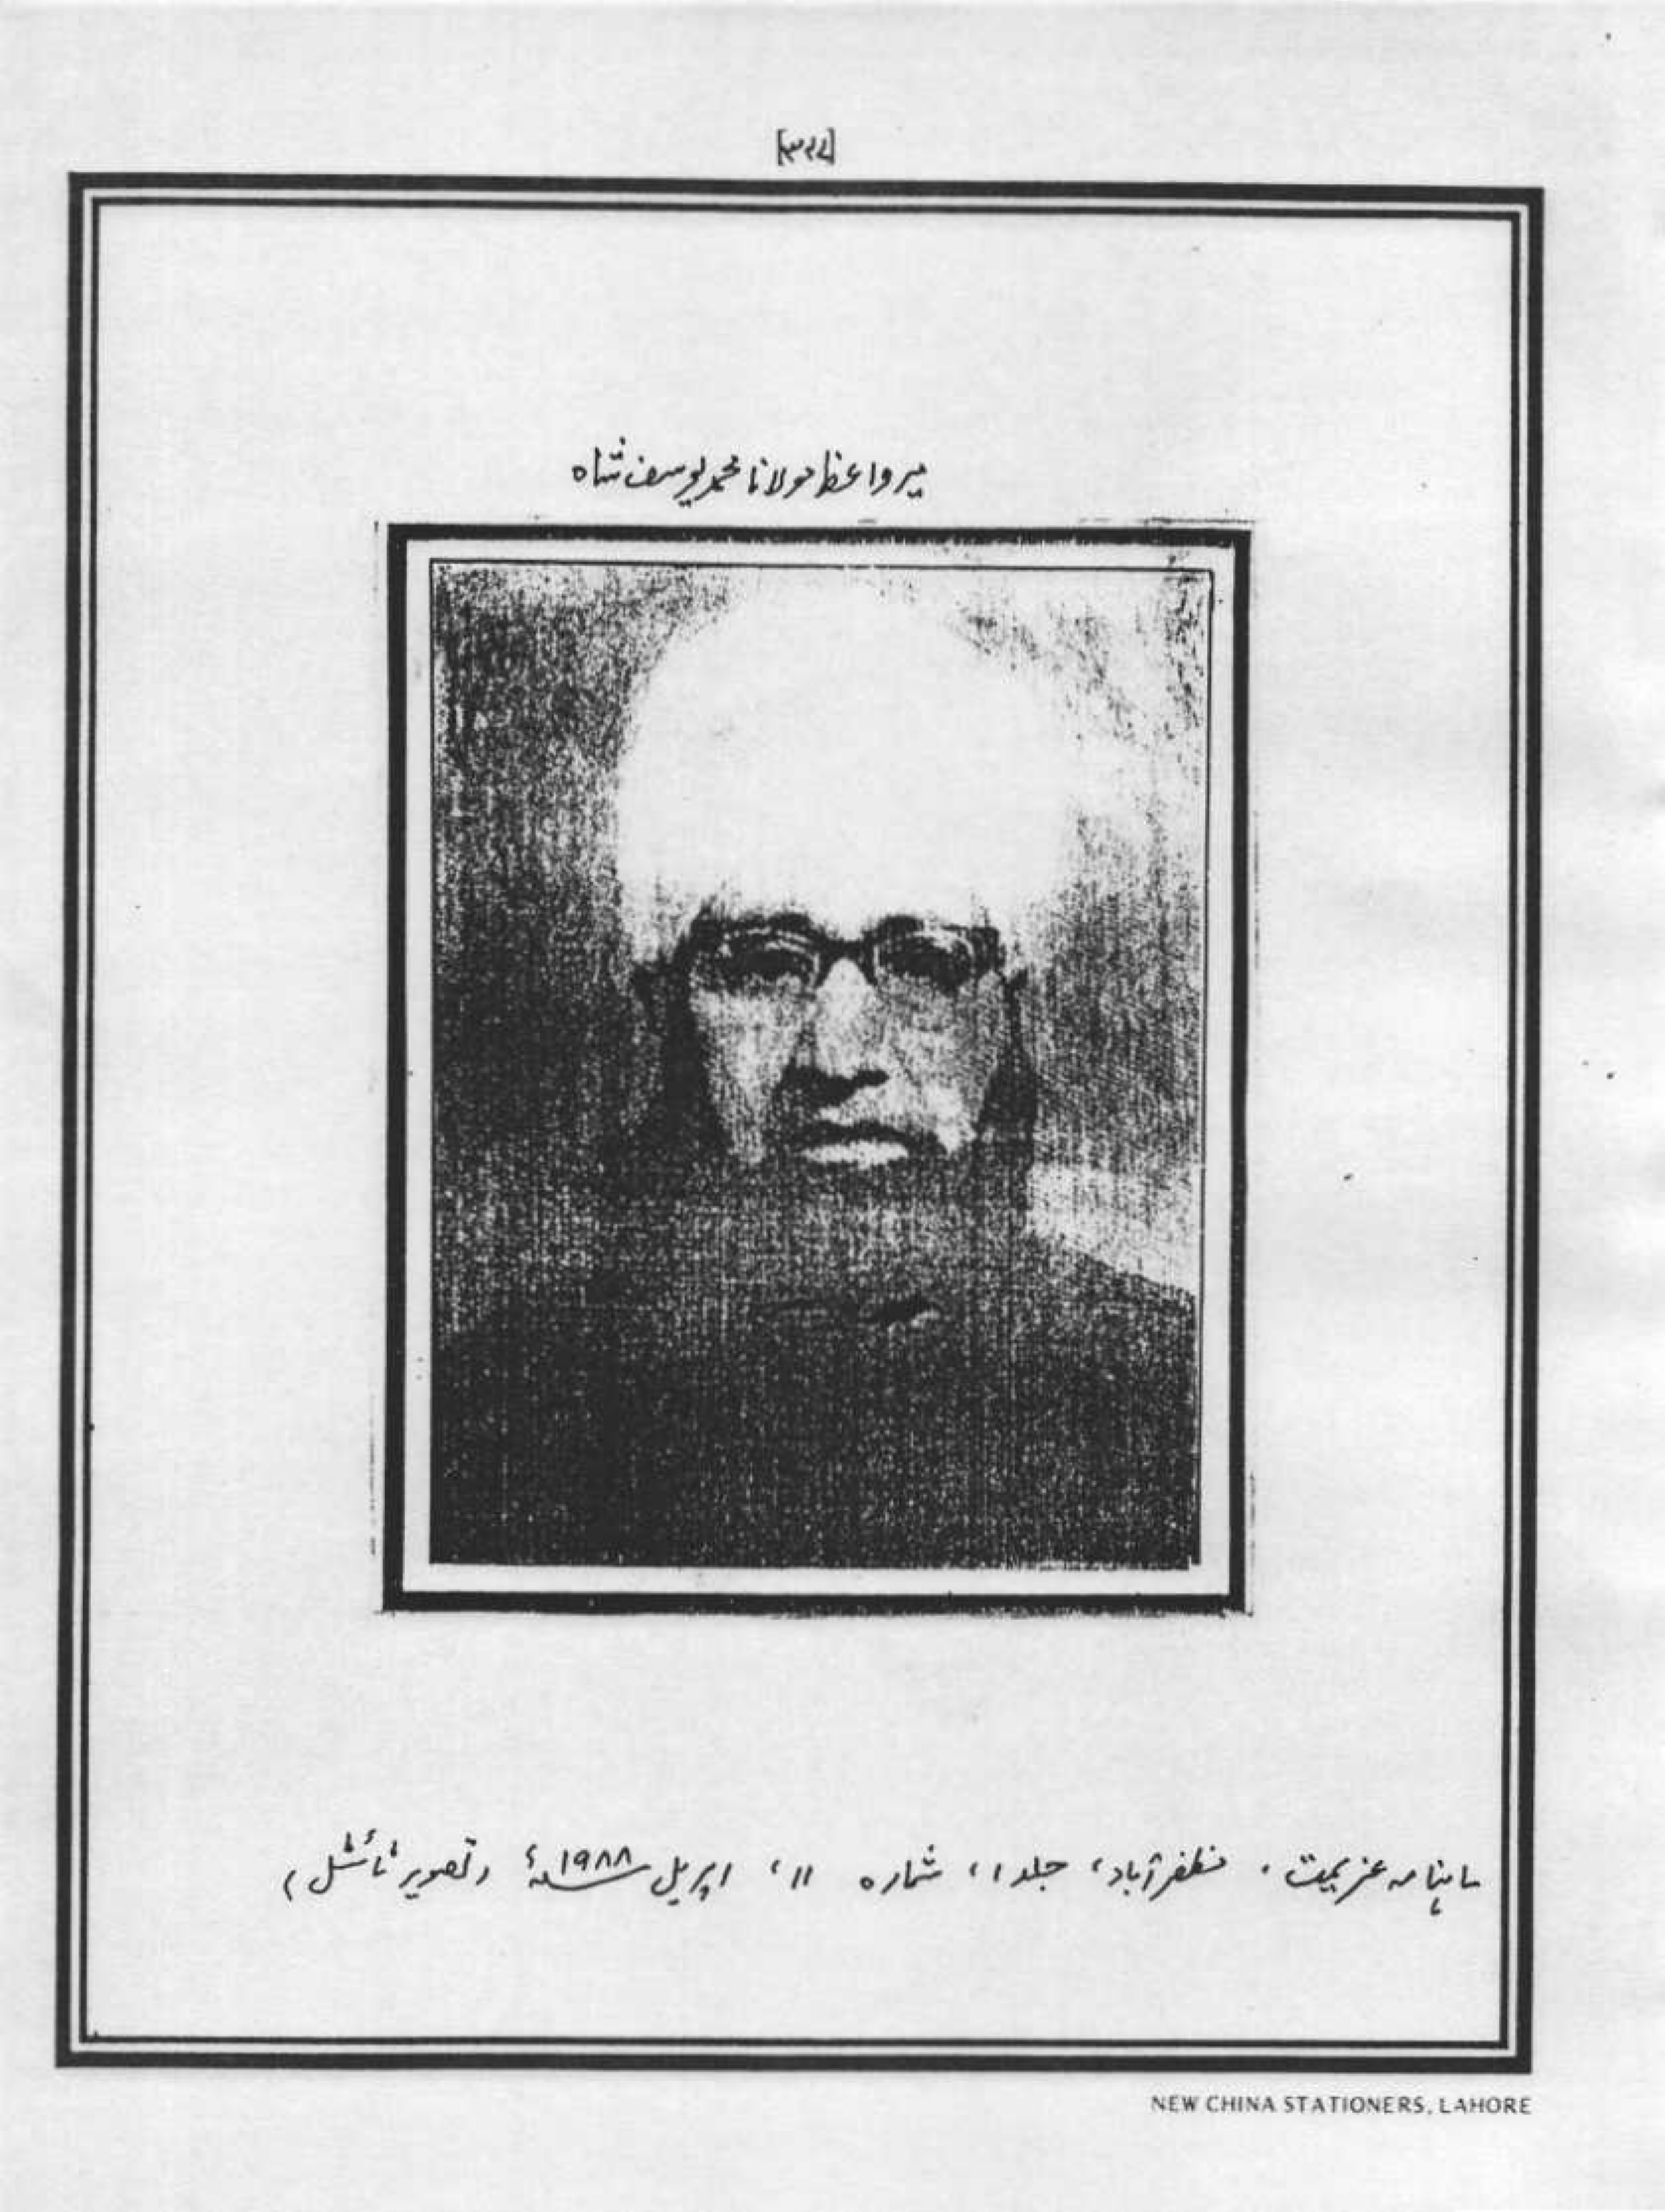 میر واعظ مولانا محمد یوسف شاہ
ماہنامہ عزیمت، مظفرآباد، جلد ۱، شمارہ ۱۱، اپریل ۱۹۸۸ء (تصویر ٹائٹل)
NEW CHINA STATIONERS, LAHORE